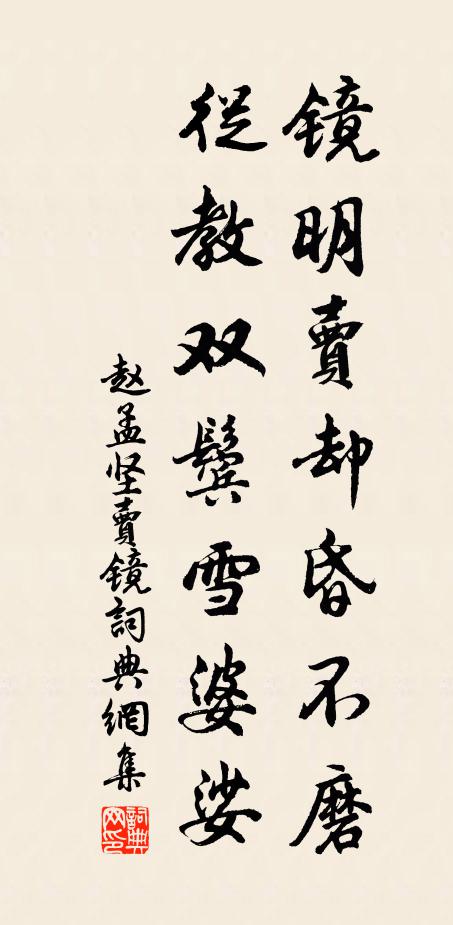 镜明賣却昏不磨
從教双鬓雪婆娑
赵孟坚賣镜詞典網集
詞典网印